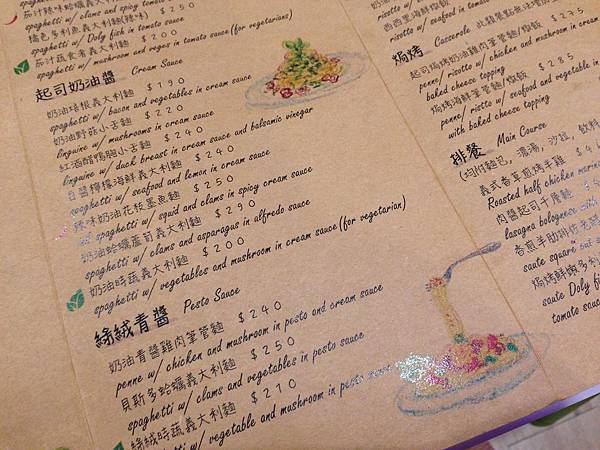 茄汁辣味蛤蠣義大利麵
spaghetti w/ clams and spicy tomato
橘色多利魚義大利麵(辣味) $250
spaghetti w/ Doly fish in tomato sauce
茄汁蔬食者義大利麵 $200
spaghetti w/ mushroom and veges in tomato sauce (for vegetarians)
起司奶油醬 Cream Sauce
奶油培根義大利麵 $190
spaghetti w/ bacon and vegetables in cream sauce
奶油野菇小舌麵 $220
linguine w/ mushrooms in cream sauce
紅酒醋鴨胸小舌麵 $240
linguine w/ duck breast in cream sauce and balsamic vinegar
白醬檸檬海鮮義大利麵 $240
spaghetti w/ seafood and lemon in cream sauce
辣味奶油花枝墨魚麵 $250
spaghetti w/ squid and clams in spicy cream sauce
奶油蛤蠣蘆筍義大利麵 $290
spaghetti w/ clams and asparagus in alfredo sauce
奶油時蔬義大利麵 $200
spaghetti w/ vegetables and mushroom in cream sauce (for vegetarian)
綠絨青醬 Pesto Sauce
奶油青醬雞肉筆管麵 $240
penne w/ chicken and mushroom in pesto and cream sauce
貝斯多蛤蠣義大利麵 $250
spaghetti w/ clams and vegetables in pesto sauce
綠絨時蔬義大利麵 $210
spaghetti w/ vegetable and mushroom in pesto sauce
risotto w/ mushroom in cream
西西里海鮮燉飯
risotto w/ seafood in tomato
焗烤 Casserole
起司焗烤奶油雞肉筆管麵/燉飯 $275
penne/ risotto w/ chicken and mushroom in cream
baked cheese topping
焗烤海鮮筆管麵/燉飯 $285
penne/ risotto w/ seafood and vegetable in
with baked cheese topping
排餐 Main Course
(均附麵包, 濃湯, 沙拉, 飲料
義式香草煎烤半雞
Roasted half chicken marin
肉醬起司千層麵
lasagna bolognese with
saute square but
焗烤鮮嫩多利
saute Doly fish
tomato sauce